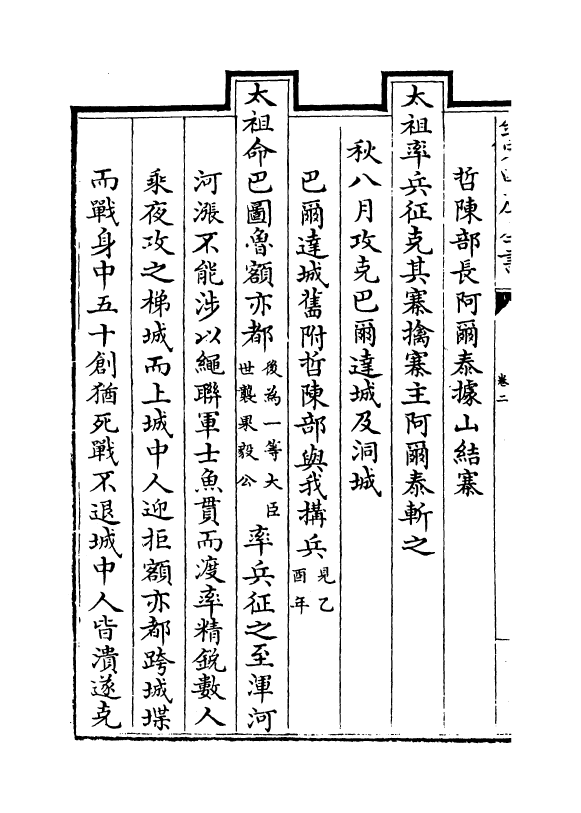 卷二
哲陳部長阿爾泰據山結寨
太祖率兵征克其寨擒寨主阿爾泰斬之
秋八月攻克巴爾達城及洞城
巴爾達城舊附哲陳部與我搆兵見乙酉年
太祖命巴圖魯額亦都後為一等大臣世襲果毅公率兵征之至渾河
河漲不能涉以繩聯軍士魚貫而渡率精銳數人
乘夜攻之梯城而上城中人迎拒額亦都跨城堞
而戰身中五十創猶死戰不退城中人皆潰遂克